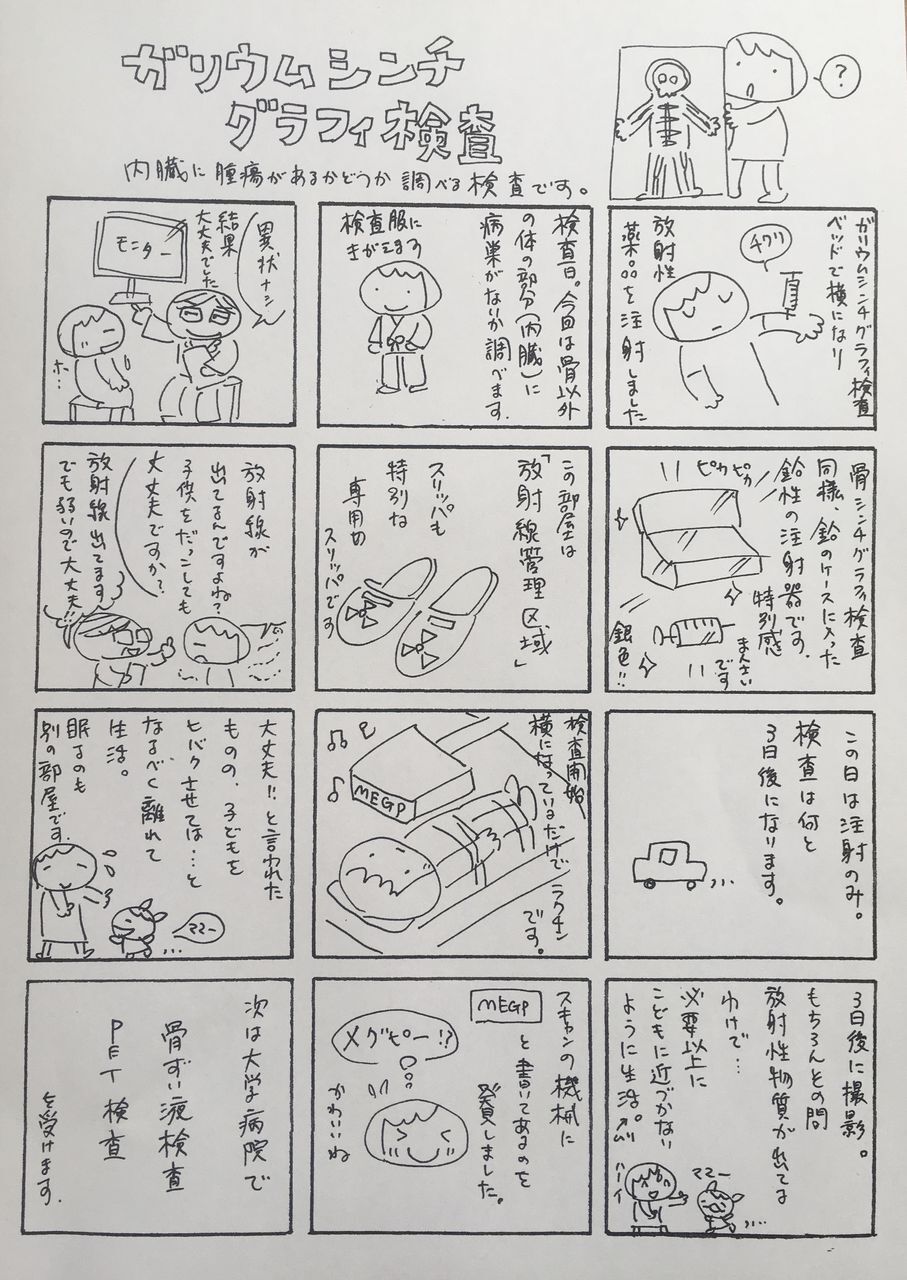 ガリウムシンチ
グラフィ検査
内臓に腫瘍があるかどうか調べる検査です。
?
ガリウムシンチグラフィ検査
ベッドで横になり
チクリ
放射性
薬品を注射しました
骨シンチグラフィ検査
同様、鉛のケースに入った
鉛性の注射器です。
特別感
まんさい
です
ピカピカ
銀色!!
この日は注射のみ。
検査は何と
3日後になります。
3日後に撮影。
もちろんその間
放射性物質が出てる
わけで…
必要以上に
こどもに近づかない
ように生活。
ママー
ハーイ
検査日。今回は骨以外
の体の部分(内臓)に
病巣がないか調べます。
検査服に
きがえます
この部屋は
「放射線管理区域」
スリッパも
特別な
専用の
スリッパです
検査開始
横になっているだけで
ラクチン
です。
MEGP
スキャンの機械に
MEGP
と書いてあるのを
発見しました。
メグピー!?
かわいいね
異状ナシ
結果
大丈夫でした
モニター
ホ…
放射線が
出てるんですよね?
子供をだっこしても
大丈夫ですか?
放射線出てます
でも弱いので大丈夫!!
大丈夫!!と言われた
ものの、子どもを
ヒバクさせては…と
なるべく離れて
生活。
眠るのも
別の部屋です。
ママー
次は大学病院で
骨ずい液検査
PET検査
を受けます。